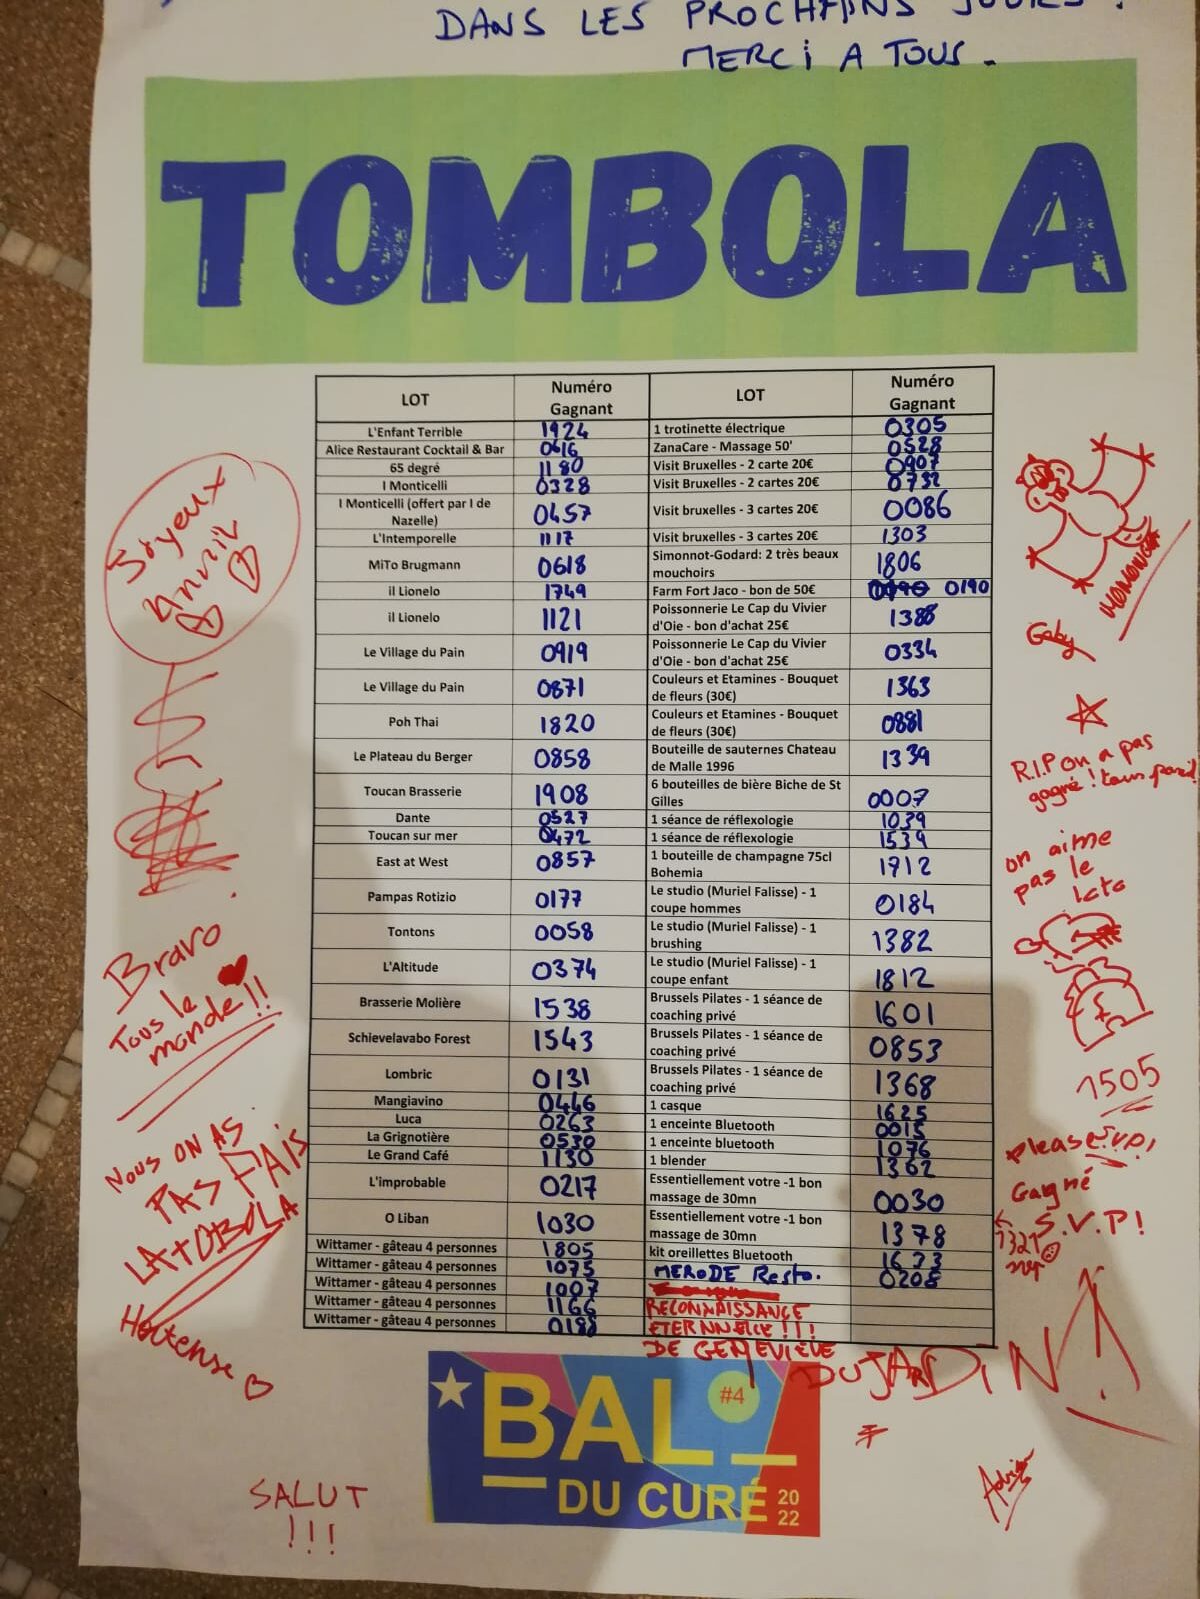 DANS LES PROCHAINS JOURS !
MERCI A TOUS.
TOMBOLA
LOT Numéro Gagnant LOT Numéro Gagnant
L'Enfant Terrible 1924 1 trotinette électrique 0305
Alice Restaurant Cocktail & Bar 0616 ZanaCare - Massage 50' 0528
65 degré 1180 Visit Bruxelles - 2 carte 20€ 0907
I Monticelli 0328 Visit Bruxelles - 2 cartes 20€ 0732
I Monticelli (offert par I de Nazelle) 0457 Visit bruxelles - 3 cartes 20€ 0086
L'Intemporelle 1117 Visit bruxelles - 3 cartes 20€ 1303
MiTo Brugmann 0618 Simonnot-Godard: 2 très beaux mouchoirs 1806
il Lionelo 1749 Farm Fort Jaco - bon de 50€ 0190
il Lionelo 1121 Poissonnerie Le Cap du Vivier d'Oie - bon d'achat 25€ 1388
Le Village du Pain 0919 Poissonnerie Le Cap du Vivier d'Oie - bon d'achat 25€ 0334
Le Village du Pain 0871 Couleurs et Etamines - Bouquet de fleurs (30€) 1363
Poh Thai 1820 Couleurs et Etamines - Bouquet de fleurs (30€) 0881
Le Plateau du Berger 0858 Bouteille de sauternes Chateau de Malle 1996 1339
Toucan Brasserie 1908 6 bouteilles de bière Biche de St Gilles 0007
Dante 0527 1 séance de réflexologie 1039
Toucan sur mer 0472 1 séance de réflexologie 1539
East at West 0857 1 bouteille de champagne 75cl Bohemia 1912
Pampas Rotizio 0177 Le studio (Muriel Falisse) - 1 coupe hommes 0184
Tontons 0058 Le studio (Muriel Falisse) - 1 brushing 1382
L'Altitude 0374 Le studio (Muriel Falisse) - 1 coupe enfant 1812
Brasserie Molière 1538 Brussels Pilates - 1 séance de coaching privé 1601
Schievelavabo Forest 1543 Brussels Pilates - 1 séance de coaching privé 0853
Lombric 0131 Brussels Pilates - 1 séance de coaching privé 1368
Mangiavino 0446 1 casque 1625
Luca 0263 1 enceinte Bluetooth 0015
La Grignotière 0530 1 enceinte bluetooth 1076
Le Grand Café 1130 1 blender 1362
L'improbable 0217 Essentiellement votre -1 bon massage de 30mn 0030
O Liban 1030 Essentiellement votre -1 bon massage de 30mn 1378
Wittamer - gâteau 4 personnes 1805 kit oreillettes Bluetooth 1673
Wittamer - gâteau 4 personnes 1075 MERODE Resto. 0208
Wittamer - gâteau 4 personnes 1007
Wittamer - gâteau 4 personnes 1166 RECONNAISSANCE
Wittamer - gâteau 4 personnes 0188 ETERNNELLE !!!
DE GENEVIEVE DUJARDIN !
Joyeux
anniv
Bravo
Tous le
monde !!
Nous ON AS
PAS FAIS
LA TOBOLA
Hortense
SALUT
!!!
Gaby
R.I.P on a pas
gagné !
on aime
pas le
loto
1505
please S.V.P!
Gagné
S.V.P!
1321
Adrien
BAL #4
DU CURÉ 2022